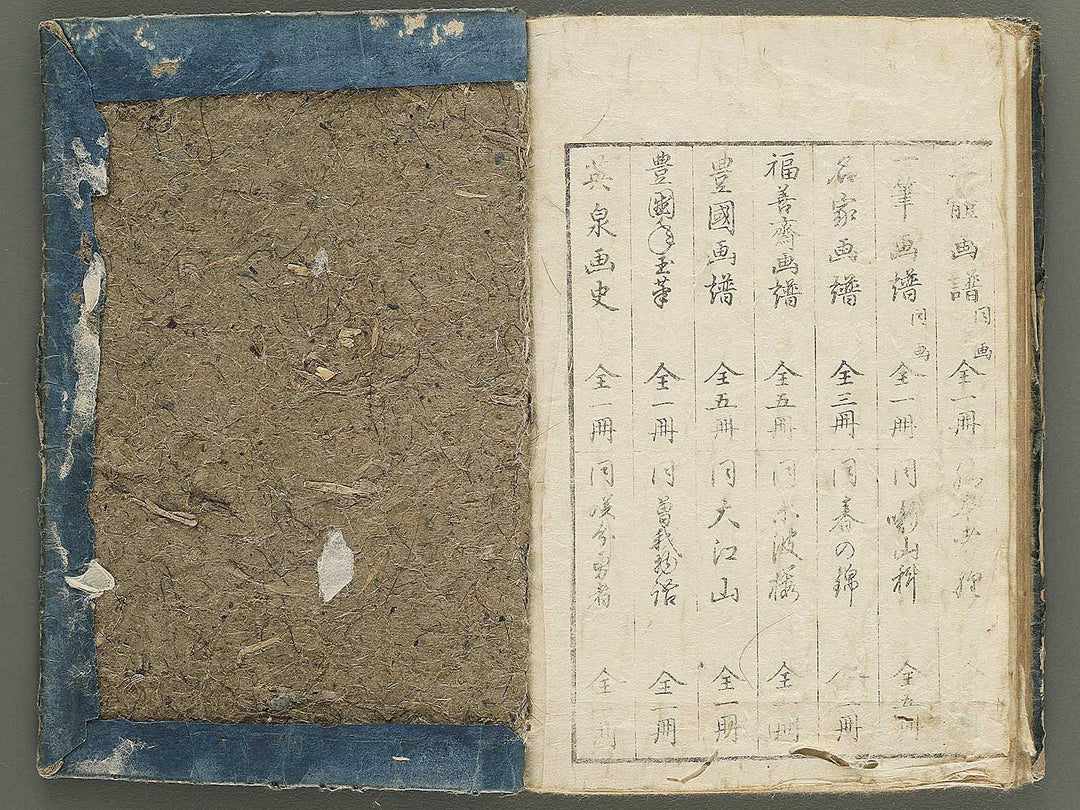 體画譜 同画 全一冊
一筆画譜 同画 全一冊 同 山科 全五冊
名家画譜 全三冊 同 春の錦 一冊
福善齋画譜 全五冊 同 全一冊
豊國画譜 全五冊 同 大江山 全一冊
豊國年玉筆 全一冊 同 曽我物語 全一冊
英泉画史 全一冊 同 全 冊